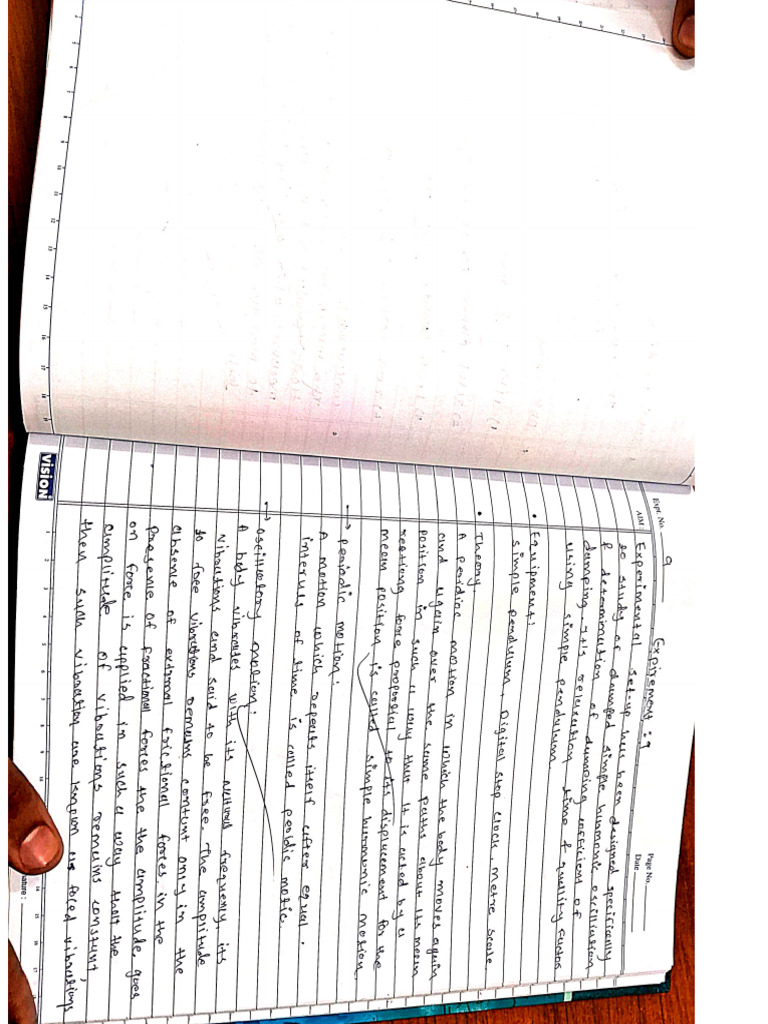 Expt. No. 9
Page No.
Date
Expirement : 9
AIM:
Experimental set-up has been designed specifically
to study of damped simple harmonic oscillation
& determination of damping cofficient of
damping, it's relaxation time & quality factor
using simple pendulum
• Equipment:
simple pendulum, Digital stop clock, metre scale.
• Theory
A peridioc motion in which the body moves again
and again over the same paths about its mean
position in such a way that it is acted by a
force propostial to its displacement for the
mean position is called simple harmonic motion.
→ periodic motion:
A motion which repeats itself after equal.
intervals of time is called peoidic motic.
→ oscillatory motion:
A body vibrates with its natural frequently, its
vibrations and said to be free. The amplitude
to free vibrations remains contant only in the
absence of extrnal frictional forces. in the
presence of fractional forces the the amplitude goes
on force is applied in such a way that the
amplitude of vibrations remains constant,
then such vibration are known as forced vibrations
VISION
nature :